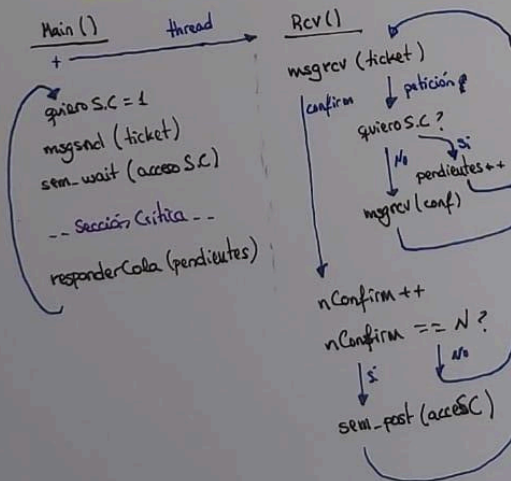 Main()
thread
quiero S.C = 1
msgsnd (ticket)
sem_wait (acceso S.C)
-- Sección Crítica --
responderCola (pendientes)
Rcv()
msgrcv (ticket)
confirm
petición
quiero S.C?
Si
No
pendientes++
msgrcv (conf)
nConfirm ++
nConfirm == N?
No
Si
sem_post (acceSC)